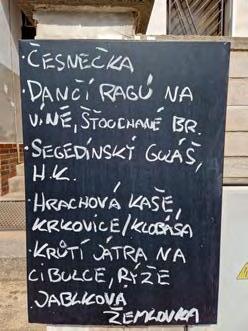 ·ČESNEČKA
·DANČÍ RAGÚ NA
VÍNĚ, ŠŤOUCHANÉ BR.
·SEGEDÍNSKÝ GULÁŠ,
H.K.
·HRACHOVÁ KAŠE,
KRKOVICE/KLOBÁSA
·KRŮTÍ JÁTRA NA
CIBULCE, RÝŽE
JABLKOVÁ
ŽEMLOVKA